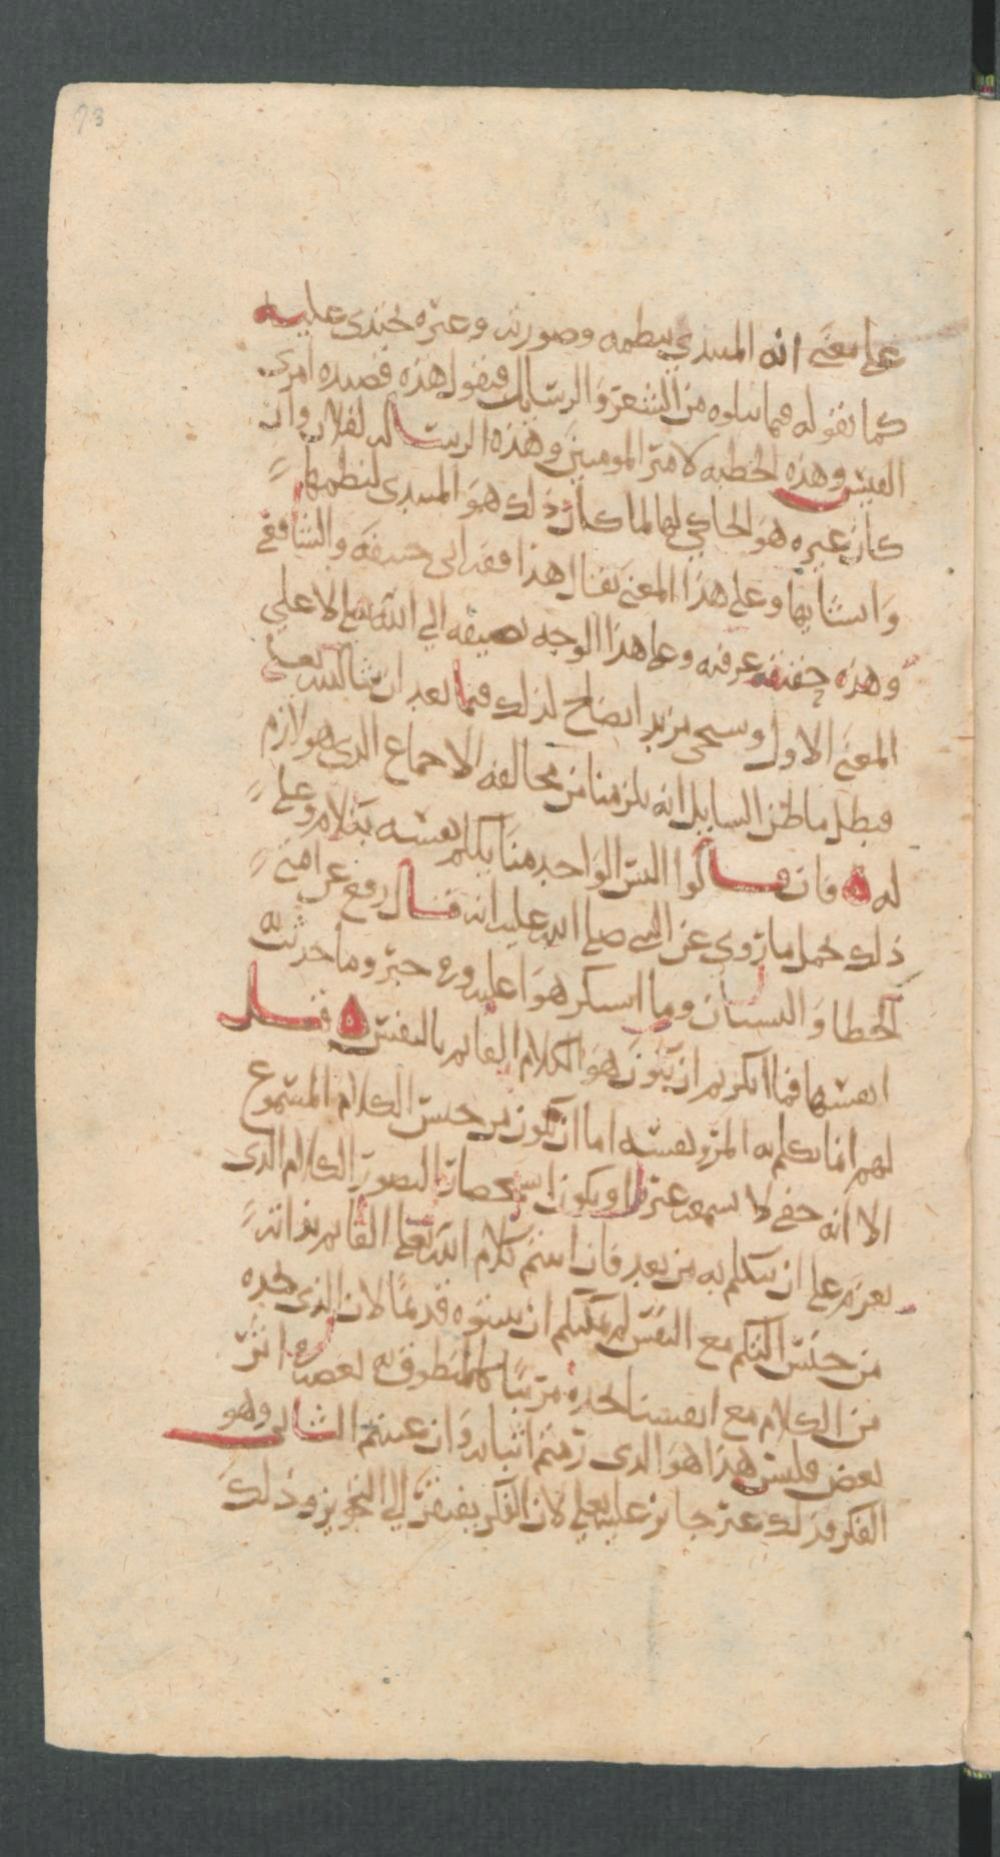 73
على معنى انه المبتدي بنظمه وصورته وغيره يحتذى عليه
كما نقوله فيما نتلوه من الشعر والرسايل فيقول هذه قصيده امرى
القيس وهذه الخطبه لامير المومنين وهذه الرساله لفلان وان
كان غيره هو الحاكي لها لما كان ذلك هو المبتدى لنظمها
وانشايها وعلى هذا المعنى يقال هذا فقه ابى حنيفه والشافعى
وهذه عرفيه وعلى هذا الوجه نضيفه الي الله تعالى لا على
المعنى الاول وسيجى مزيد ايضاح لذلك فيما بعد ان شا الله تعلى
فبطل ما ظن السايل انه يلزمنا من مخالفه الاجماع الذى هو لازم
له ه فان قالوا اليس الواحد منا يكلم نفسه بكلام وعلى
ذلك حمل ما روي عن النبي صلى الله عليه انه قال رفع عن امتي
الخطا والنسيان وما استكرهوا عليه وما حدثت به
انفسها فما انكرتم ان يكون هو الكلام القايم بالنفس ه قيل
لهم انما يكلم به المرو نفسه اما ان يكون من جنس الكلام المسموع
الا انه خفي لا يسمعه غيره او يكون استحضارا لتصور الكلام الذى
يعزم على ان يتكلم به من بعد فان اثبتم كلام الله تعلى القايم بذاته
من جنس التكلم مع النفس لم يمكنكم ان تثبتوه قديما لان الذى نجده
من الكلام مع انفسنا نجده مرتبا كالمنطوق به بعضه اثر
بعض فليس هذا هو الذى رمتم اثباته وان عنيتم الثانى وهو
الفكر فذلك غير جايز عليه تعلى لان الفكر يفتقر الي التجويز وذلك